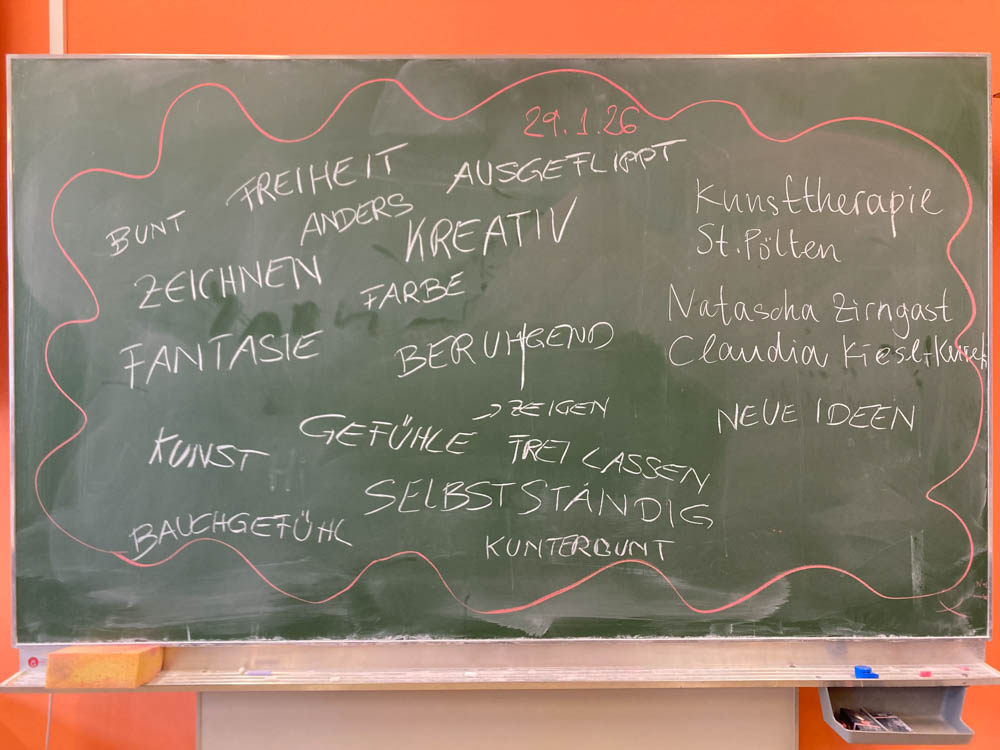 29.1.26
FREIHEIT
AUSGEFLIPPT
BUNT
ANDERS
KREATIV
Kunsttherapie
St. Pölten
ZEICHNEN
FARBE
Natascha Zirngast
FANTASIE
BERUHGEND
Claudia
→ ZEIGEN
NEUE IDEEN
KUNST
GEFÜHLE
FREI LASSEN
SELBSTSTÄNDIG
BAUCHGEFÜHL
KUNTERBUNT